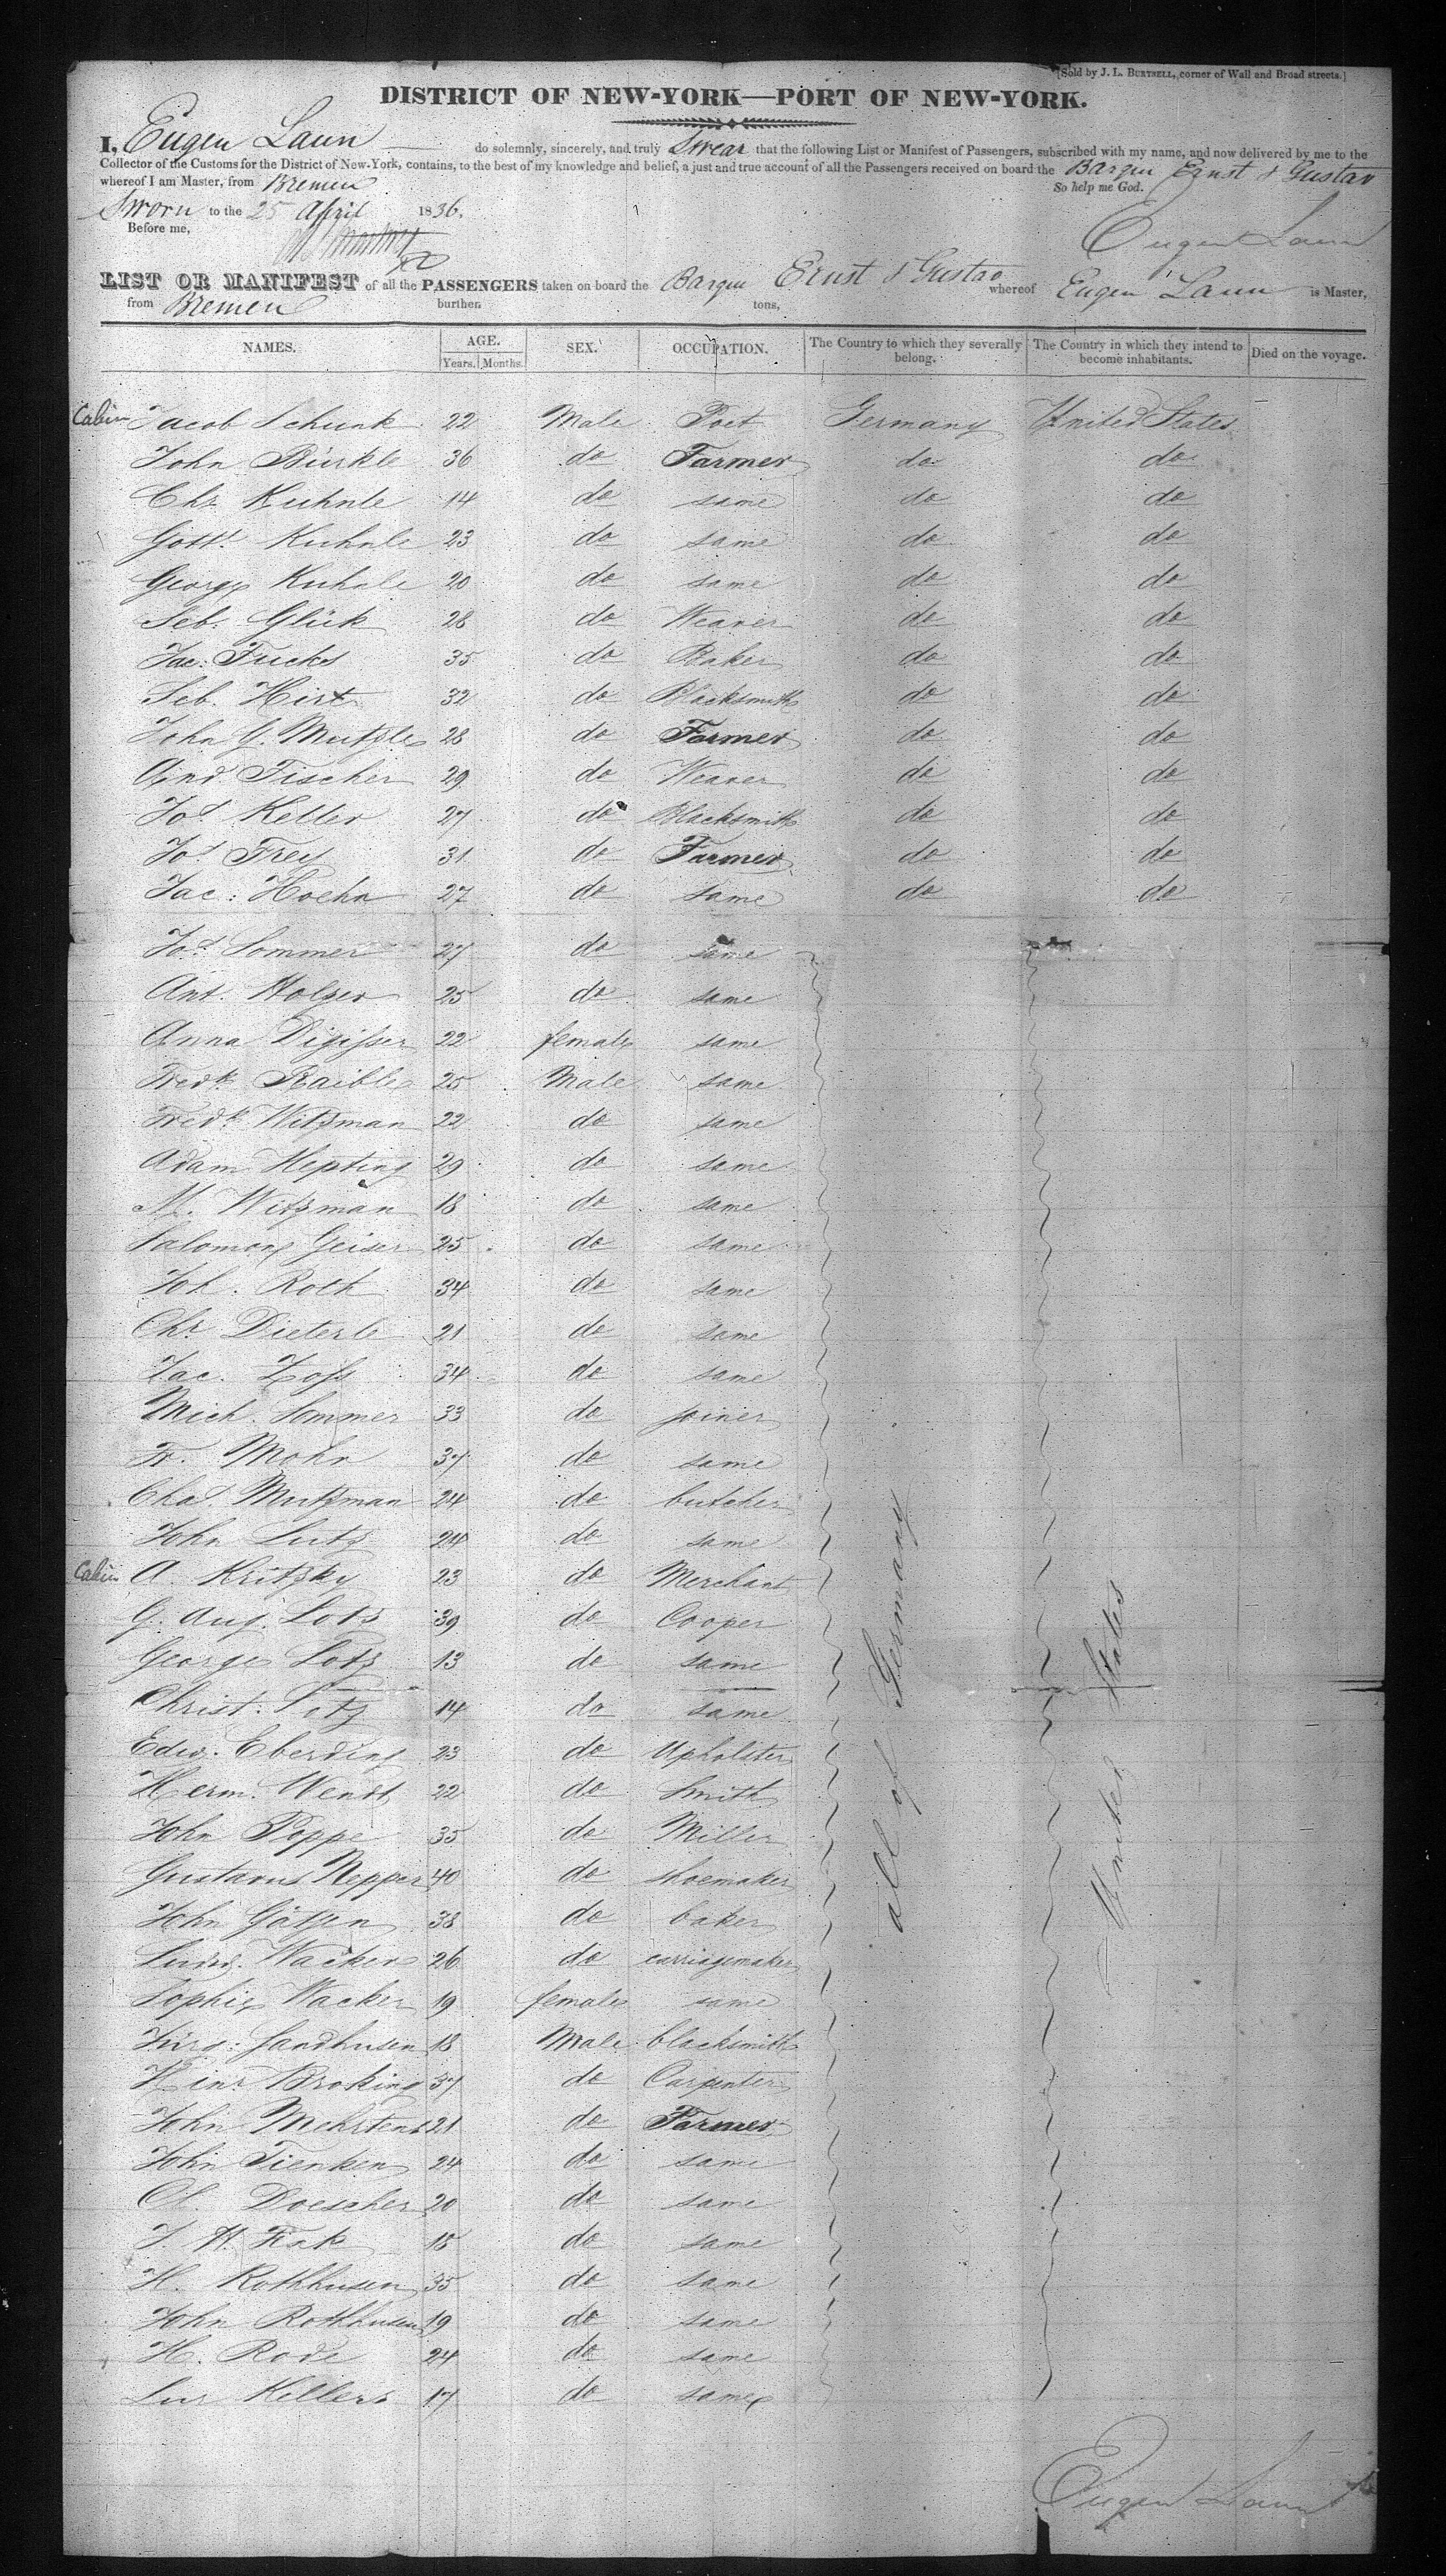 [Sold by J. L. BURTSELL, corner of Wall and Broad streets.]
DISTRICT OF NEW-YORK—PORT OF NEW-YORK.
I, Eugen Laun do solemnly, sincerely, and truly Swear that the following List or Manifest of Passengers, subscribed with my name, and now delivered by me to the
Collector of the Customs for the District of New-York, contains, to the best of my knowledge and belief, a just and true account of all the Passengers received on board the Barque Ernst & Gustav
whereof I am Master, from Bremen So help me God.
Sworn to the 25 April 1836, Eugen Laun
Before me,
LIST OR MANIFEST of all the PASSENGERS taken on board the Barque Ernst & Gustav whereof Eugen Laun is Master,
from Bremen burthen tons,
NAMES. AGE. Years. Months. SEX. OCCUPATION. The Country to which they severally belong. The Country in which they intend to become inhabitants. Died on the voyage.
Cabin Jacob Schunk 22 Male Poet Germany United States
John Bürkle 36 do Farmer do do
Chr Kuhnle 14 do same do do
Gott. Kuhnle 23 do same do do
George Kuhnle 20 do same do do
Seb. Glück 28 do Weaver do do
Jac: Fucks 35 do Baker do do
Seb. Hirt 32 do Blacksmith do do
John G. Mutzle 28 do Farmer do do
Fischer 29 do Weaver do do
Jos Keller 27 do Blacksmith do do
Jos Frey 31 do Farmer do do
Jac: Hoehn 27 do same do do
Jos Sommer 27 do same
Ant. Holzer 25 do same
Anna Digisser 22 female same
Fredk Raible 25 Male same
Fredk Witzman 22 do same
Adam Hepting 29 do same
M. Witzman 18 do same
Salomon Geiser 25 do same
Joh. Roth 34 do same
Chr Dieterle 21 do same
Jac. Zoss 34 do same
Mich. Sommer 33 do joiner
Fr. Mohr 37 do same
Chas. Mutzman 24 do butcher
John Lutz 24 do same
Cabin A. Kritzky 23 do Merchant
G. Aug. Lotz 39 do Cooper
George Lotz 13 do same
Christ. Lotz 14 do same
Edw. Eberding 23 do Upholster
Herm. Wendt 22 do Smith
John Poppe 35 do Miller
Gustavus Nepper 40 do shoemaker
John Götzen 38 do baker
Ludw. Wacker 26 do carriagemaker
Sophie Wacker 19 female same
Jürg: Sandhusen 18 Male blacksmith
Hinr Broking 37 do Carpenter
John Mehrtens 21 do Farmer
John Tienken 24 do same
Cl. Doescher 20 do same
J. H. Fick 18 do same
H. Rothhusen 35 do same
John Rothhusen 19 do same
H. Rode 24 do same
Lur Killers 17 do same
all of Germany
United States
Eugen Laun